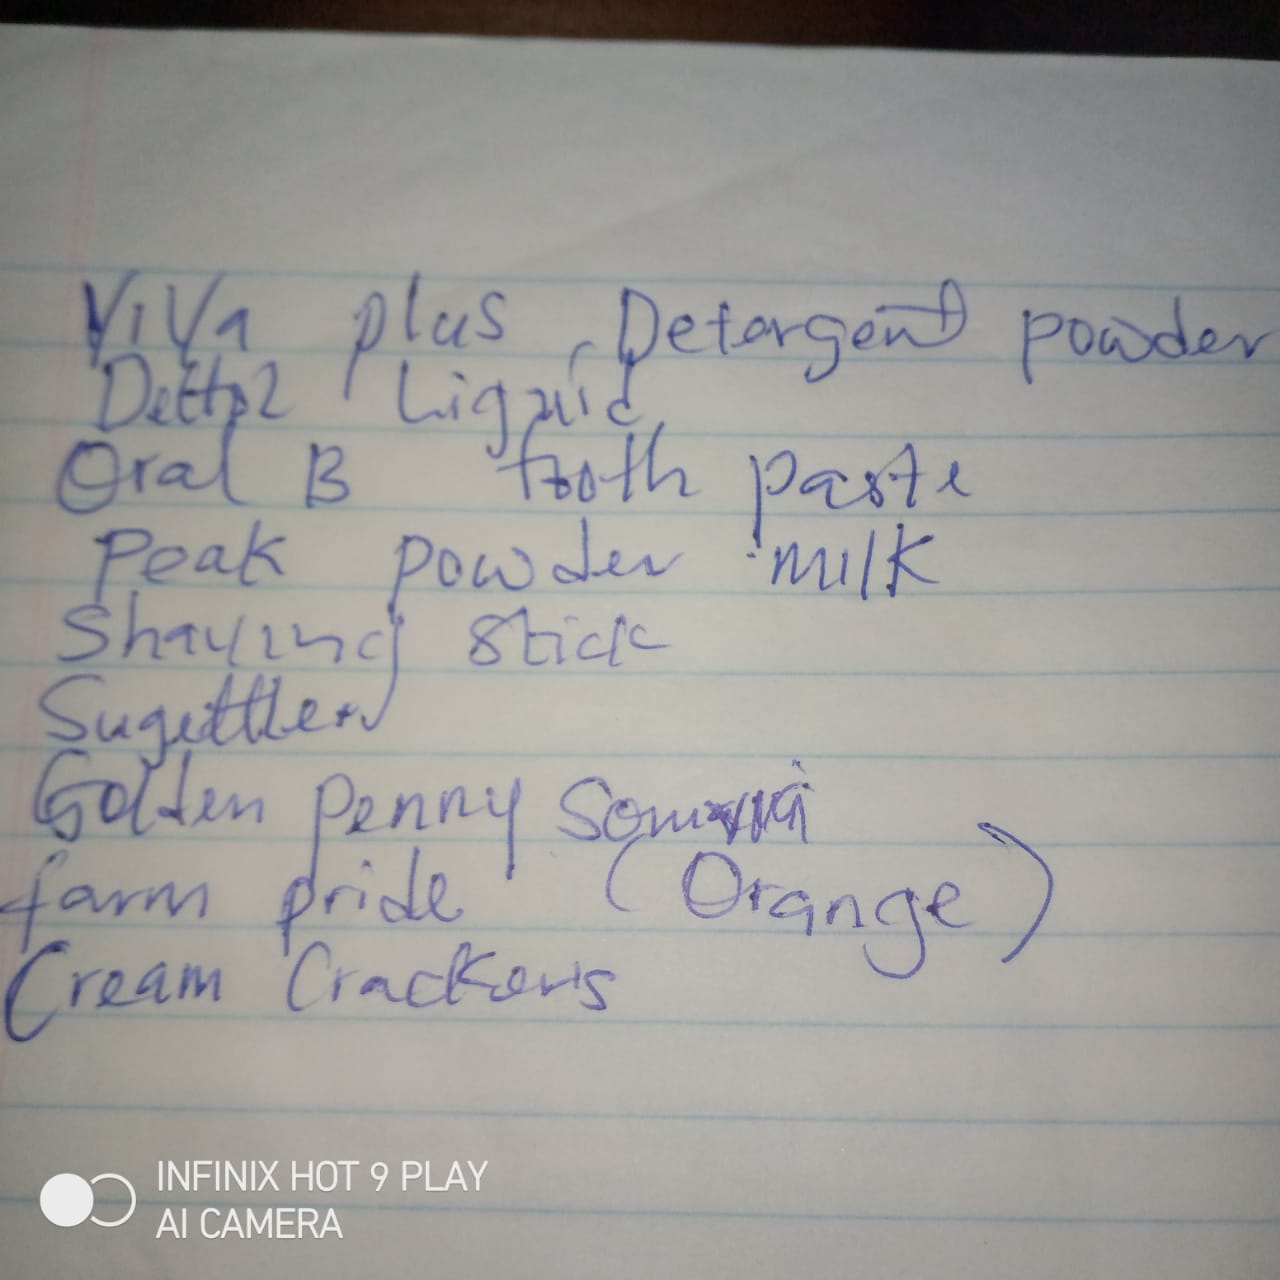 ViVa plus Detergent powder
Dettol Liquid
Oral B tooth paste
Peak powder milk
Shaving stick
Golden Penny
farm pride (Orange)
Cream Crackers
INFINIX HOT 9 PLAY
AI CAMERA